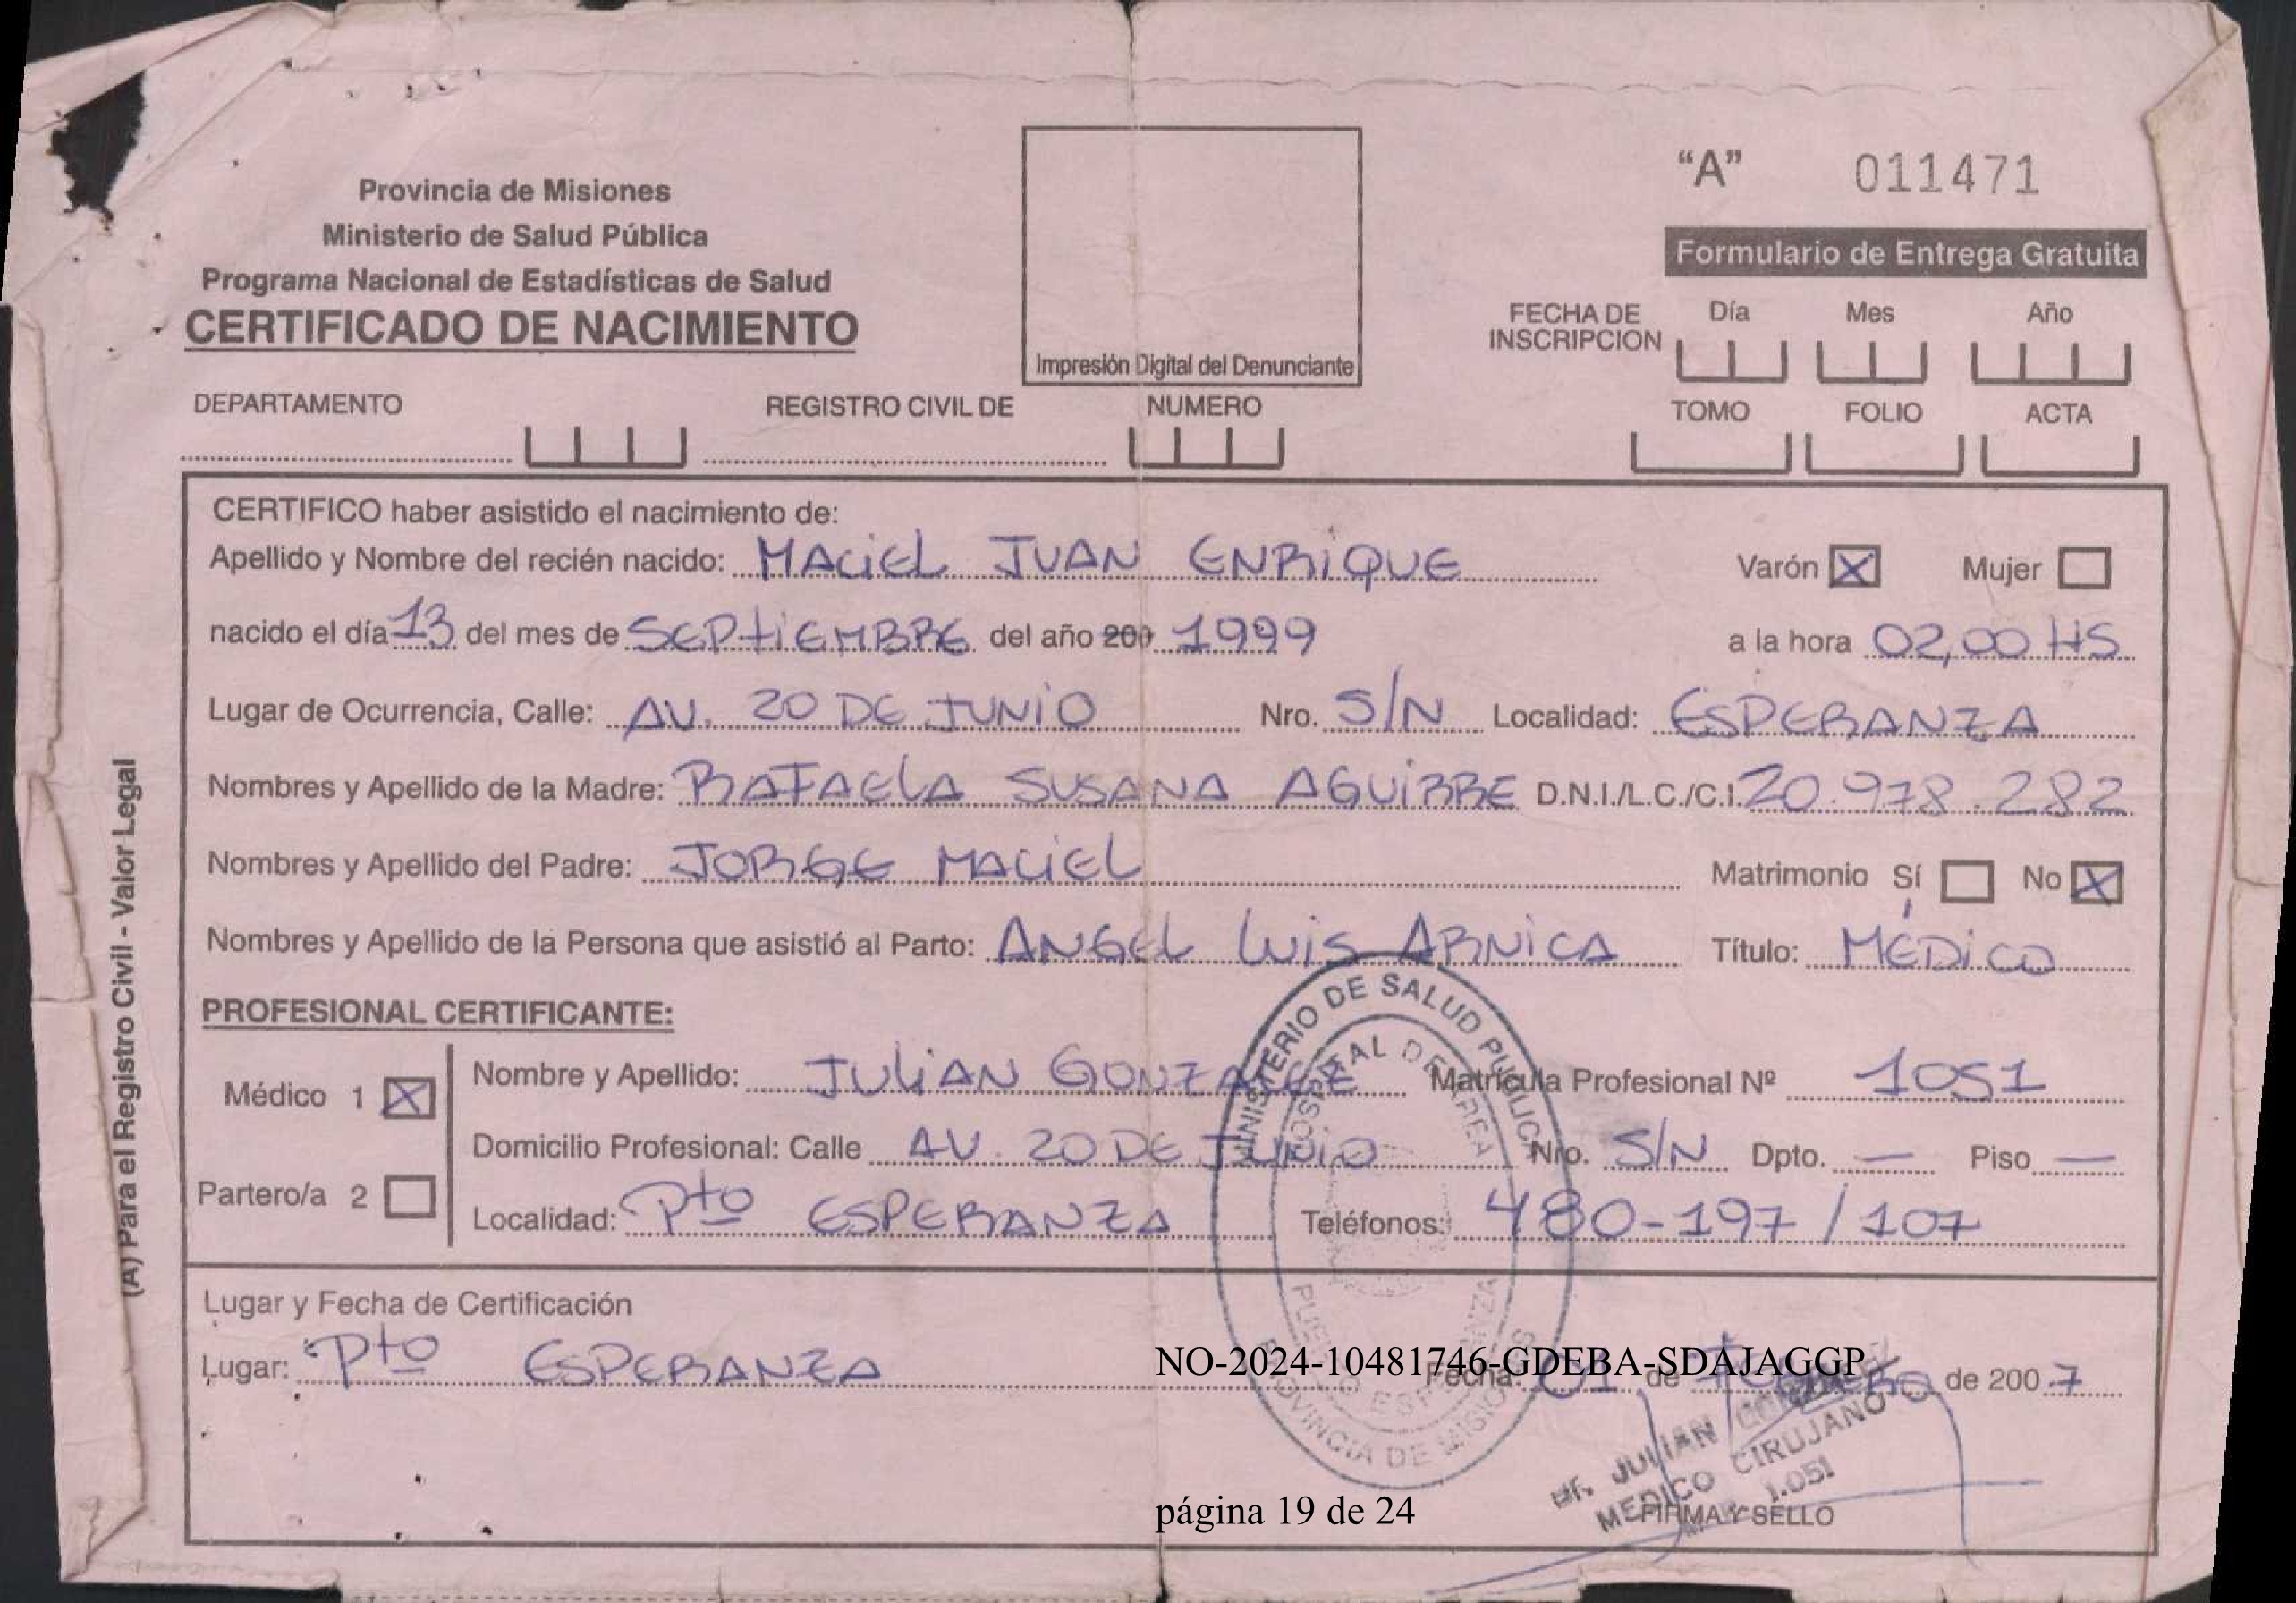 "A" 011471
Provincia de Misiones
Ministerio de Salud Pública
Programa Nacional de Estadísticas de Salud
CERTIFICADO DE NACIMIENTO
Impresión Digital del Denunciante
Formulario de Entrega Gratuita
FECHA DE INSCRIPCION Día Mes Año
DEPARTAMENTO REGISTRO CIVIL DE NUMERO TOMO FOLIO ACTA
CERTIFICO haber asistido el nacimiento de:
Apellido y Nombre del recién nacido: MACIEL JUAN ENRIQUE Varón X Mujer
nacido el día 13 del mes de SEPTIEMBRE del año 200 1999 a la hora 02,00 HS
Lugar de Ocurrencia, Calle: AV. 20 DE JUNIO Nro. S/N Localidad: ESPERANZA
Nombres y Apellido de la Madre: RAFAELA SUSANA AGUIRRE D.N.I./L.C./C.I. 20.978.282
Nombres y Apellido del Padre: JORGE MACIEL Matrimonio Sí No X
Nombres y Apellido de la Persona que asistió al Parto: ANGEL LUIS ARNICA Título: MÉDICO
PROFESIONAL CERTIFICANTE:
Médico 1 X Nombre y Apellido: JULIAN GONZALEZ Matrícula Profesional Nº 1051
Domicilio Profesional: Calle AV. 20 DE JUNIO Nro. S/N Dpto. — Piso —
Partero/a 2 Localidad: Pto ESPERANZA Teléfonos: 480-197/107
Lugar y Fecha de Certificación
Lugar: Pto ESPERANZA Fecha: 01 de de 2007
NO-2024-10481746-GDEBA-SDAJAGGP
MINISTERIO DE SALUD PUBLICA
HOSPITAL DE AREA
PUERTO ESPERANZA
PROVINCIA DE MISIONES
Dr. JULIAN
MEDICO CIRUJANO
1.051
FIRMA Y SELLO
página 19 de 24
(A) Para el Registro Civil - Valor Legal